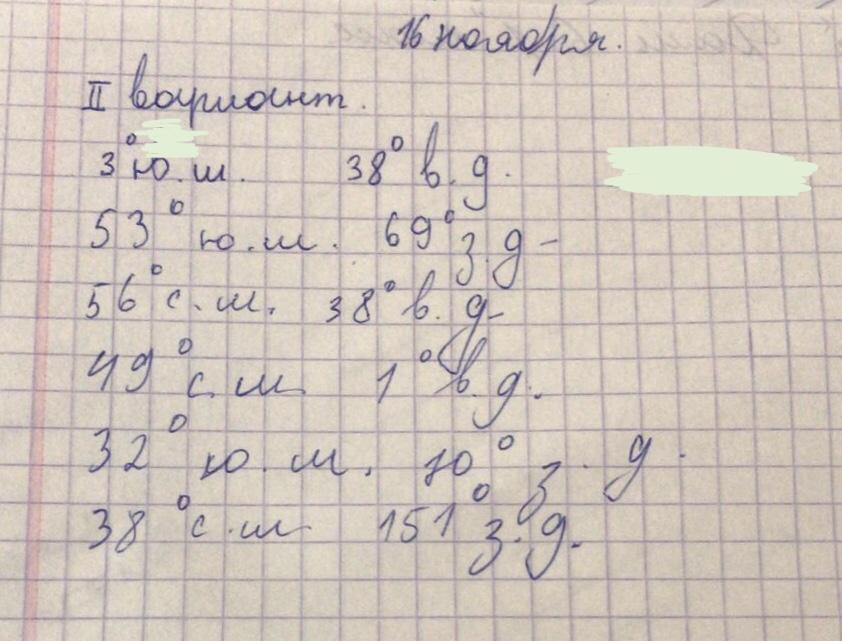 16 ноября.
II вариант.
3° ю.ш. 38° в.д.
53° ю.ш. 69° з.д.
56° с.ш. 38° в.д.
49° с.ш. 1° в.д.
32° ю.ш. 70° з.д.
38° с.ш. 151° з.д.